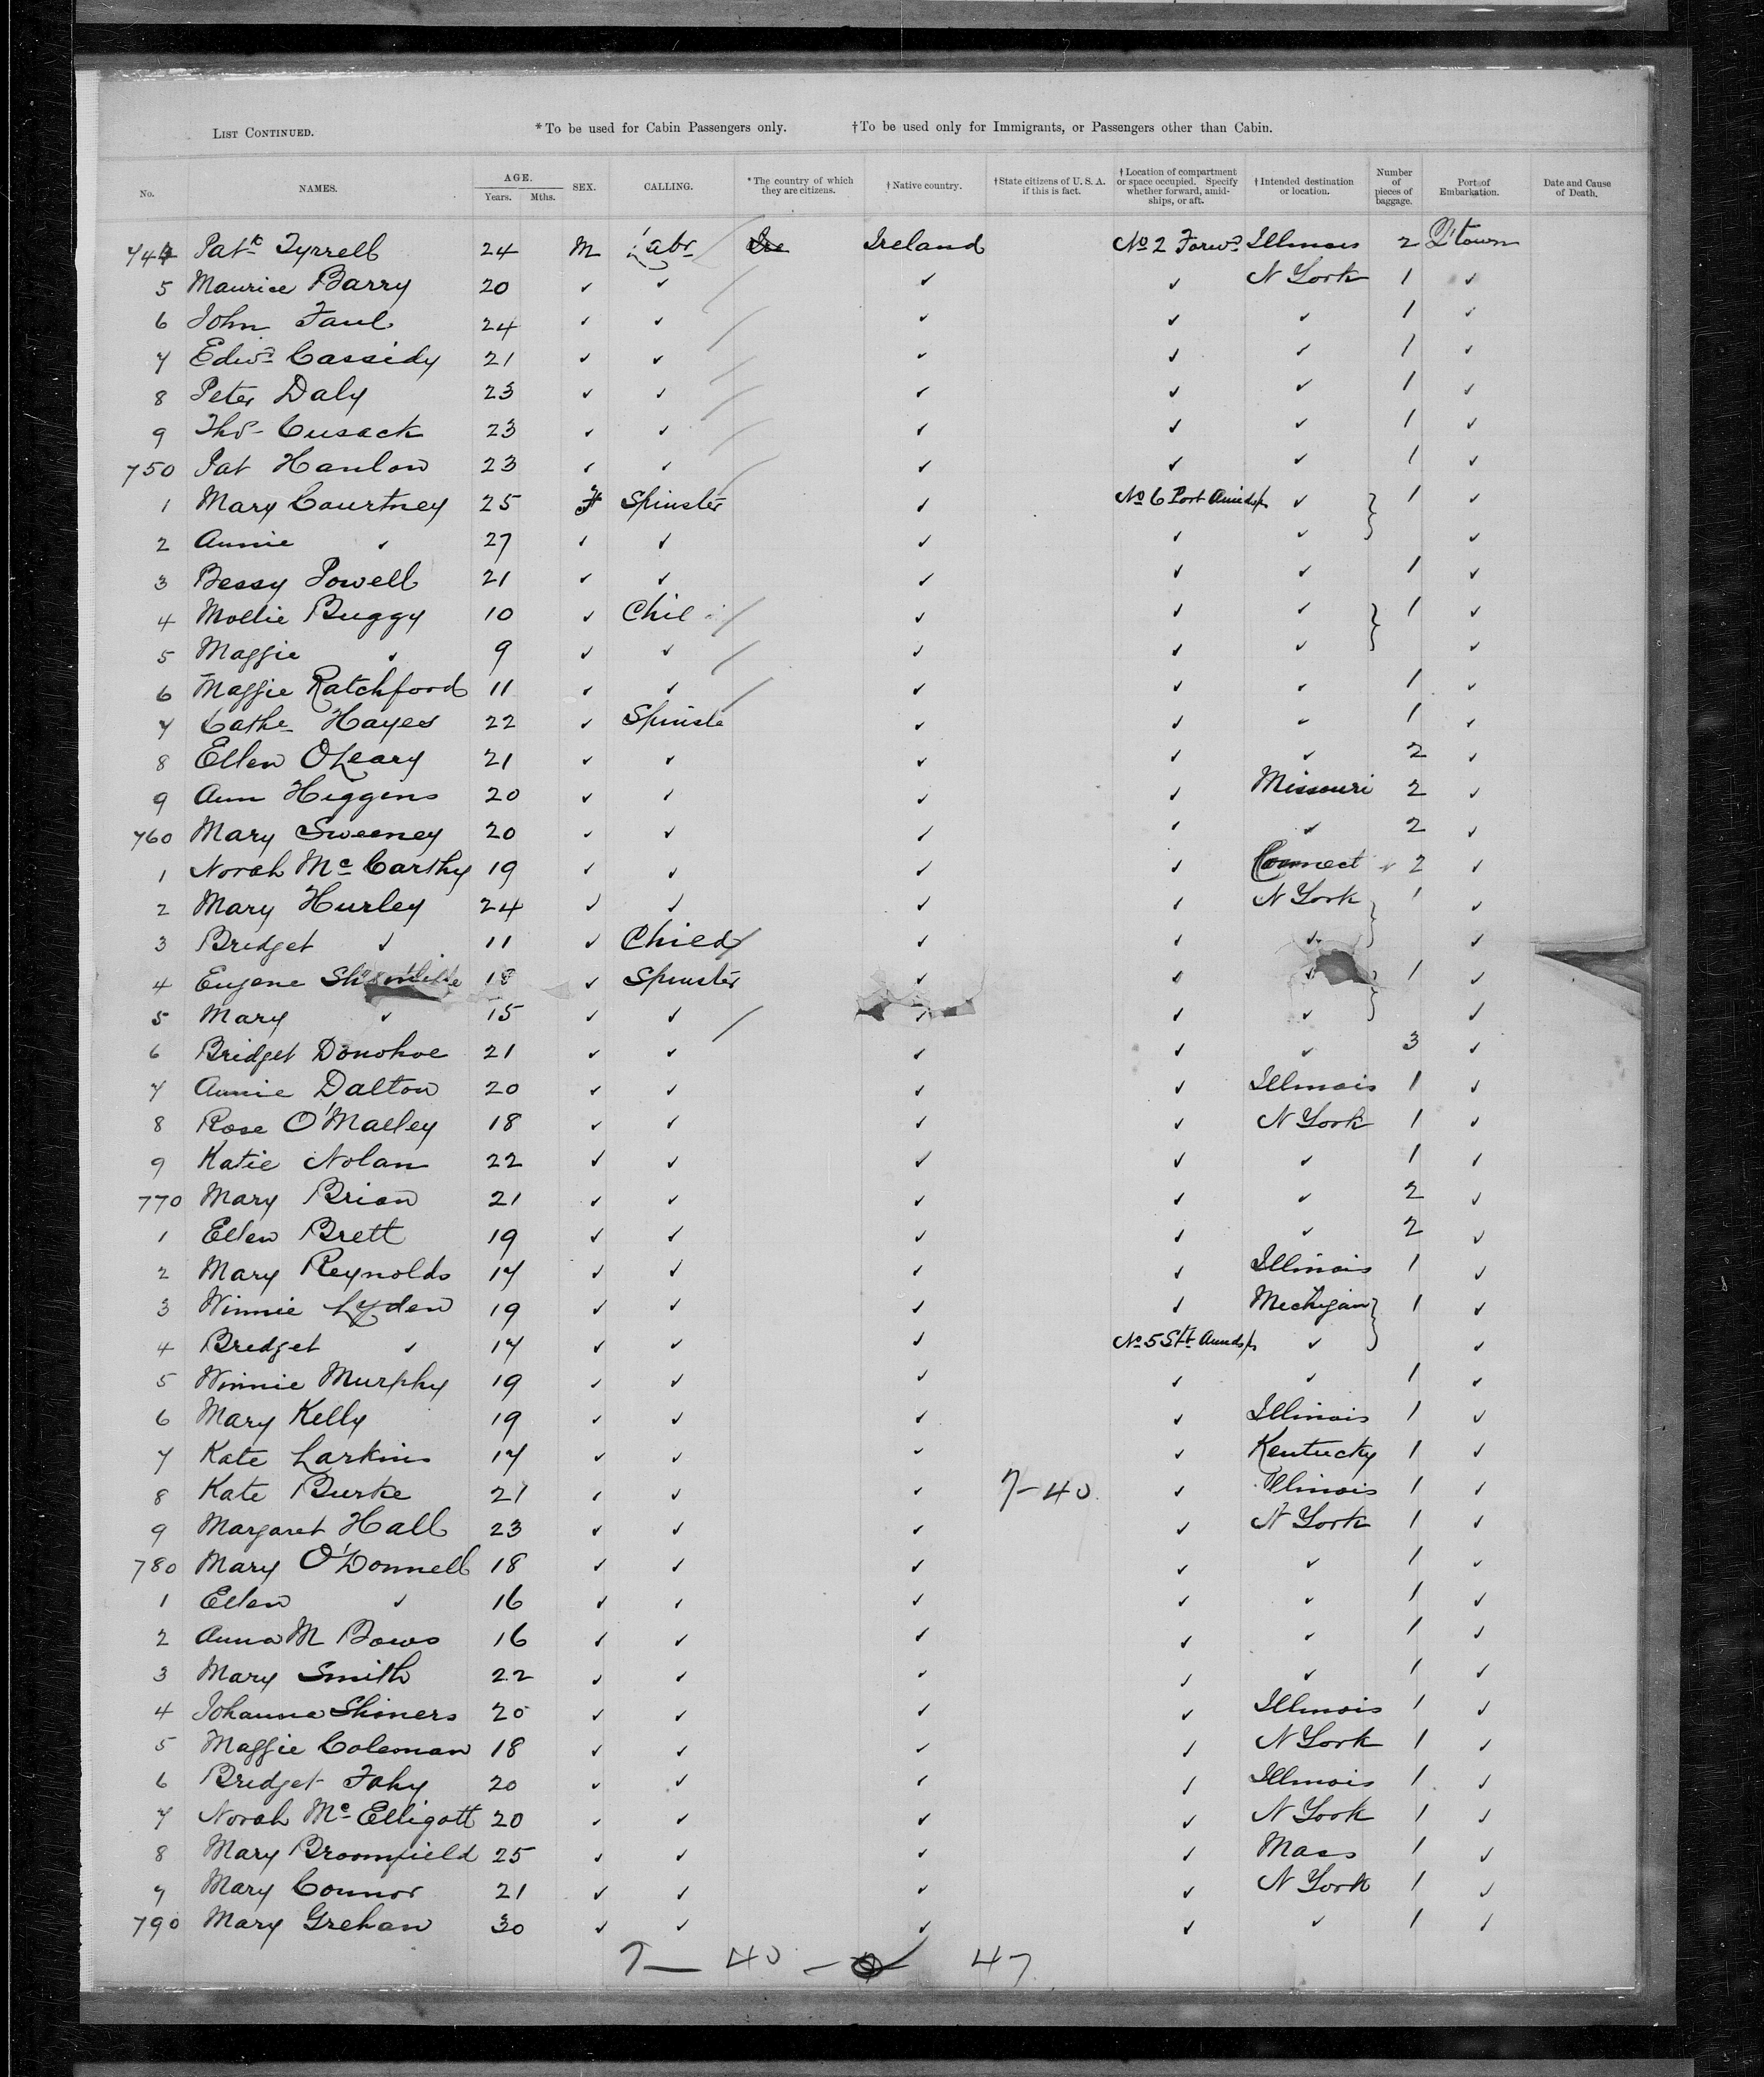 LIST CONTINUED. *To be used for Cabin Passengers only. †To be used only for Immigrants, or Passengers other than Cabin.
No. NAMES. AGE. Years. Mths. SEX. CALLING. *The country of which they are citizens. †Native country. †State citizens of U. S. A. if this is fact. †Location of compartment or space occupied. Specify whether forward, amidships, or aft. †Intended destination or location. Number of pieces of baggage. Port of Embarkation. Date and Cause of Death.
744 Patk Tyrrell 24 M Labr Ire Ireland No 2 Forwd Illinois 2 Q'town
5 Maurice Barry 20 ✓ ✓ ✓ ✓ N York 1 ✓
6 John Faul 24 ✓ ✓ ✓ ✓ ✓ 1 ✓
7 Edwd Cassidy 21 ✓ ✓ ✓ ✓ ✓ 1 ✓
8 Peter Daly 23 ✓ ✓ ✓ ✓ ✓ 1 ✓
9 Thos Cusack 23 ✓ ✓ ✓ ✓ ✓ 1 ✓
750 Pat Hanlon 23 ✓ ✓ ✓ ✓ ✓ 1 ✓
1 Mary Courtney 25 F Spinster ✓ No 6 Port Amidsps ✓ 1 ✓
2 Annie ✓ 27 ✓ ✓ ✓ ✓ ✓ ✓
3 Bessy Powell 21 ✓ ✓ ✓ ✓ ✓ 1 ✓
4 Mollie Buggy 10 ✓ Chil ✓ ✓ ✓ 1 ✓
5 Maggie ✓ 9 ✓ ✓ ✓ ✓ ✓ ✓
6 Maggie Ratchford 11 ✓ ✓ ✓ ✓ ✓ 1 ✓
7 Cathe Hayes 22 ✓ Spinste ✓ ✓ ✓ 1 ✓
8 Ellen O'Leary 21 ✓ ✓ ✓ ✓ ✓ 2 ✓
9 Ann Higgens 20 ✓ ✓ ✓ ✓ Missouri 2 ✓
760 Mary Sweeney 20 ✓ ✓ ✓ ✓ ✓ 2 ✓
1 Norah McCarthy 19 ✓ ✓ ✓ ✓ Connect 2 ✓
2 Mary Hurley 24 ✓ ✓ ✓ ✓ N York 1 ✓
3 Bridget ✓ 11 ✓ Child ✓ ✓ ✓ ✓
4 Eugene 18 ✓ Spinster ✓ ✓ ✓ 1 ✓
5 Mary ✓ 15 ✓ ✓ ✓ ✓ ✓ ✓
6 Bridget Donohoe 21 ✓ ✓ ✓ ✓ ✓ 3 ✓
7 Annie Dalton 20 ✓ ✓ ✓ ✓ Illinois 1 ✓
8 Rose O'Malley 18 ✓ ✓ ✓ ✓ N York 1 ✓
9 Katie Nolan 22 ✓ ✓ ✓ ✓ ✓ 1 ✓
770 Mary Brian 21 ✓ ✓ ✓ ✓ ✓ 2 ✓
1 Ellen Brett 19 ✓ ✓ ✓ ✓ ✓ 2 ✓
2 Mary Reynolds 17 ✓ ✓ ✓ ✓ Illinois 1 ✓
3 Winnie Lyden 19 ✓ ✓ ✓ ✓ Mechigan 1 ✓
4 Bridget ✓ 17 ✓ ✓ ✓ No 5 Stb Amidsps ✓ ✓
5 Winnie Murphy 19 ✓ ✓ ✓ ✓ ✓ 1 ✓
6 Mary Kelly 19 ✓ ✓ ✓ ✓ Illinois 1 ✓
7 Kate Larkins 17 ✓ ✓ ✓ ✓ Kentucky 1 ✓
8 Kate Burke 21 ✓ ✓ ✓ 7-40 ✓ Illinois 1 ✓
9 Margaret Hall 23 ✓ ✓ ✓ ✓ N York 1 ✓
780 Mary O'Donnell 18 ✓ ✓ ✓ ✓ ✓ 1 ✓
1 Ellen ✓ 16 ✓ ✓ ✓ ✓ ✓ 1 ✓
2 Anna M Bows 16 ✓ ✓ ✓ ✓ ✓ 1 ✓
3 Mary Smith 22 ✓ ✓ ✓ ✓ ✓ 1 ✓
4 Johanna Shiners 20 ✓ ✓ ✓ ✓ Illinois 1 ✓
5 Maggie Coleman 18 ✓ ✓ ✓ ✓ N York 1 ✓
6 Bridget Fahy 20 ✓ ✓ ✓ ✓ Illinois 1 ✓
7 Norah McElligott 20 ✓ ✓ ✓ ✓ N York 1 ✓
8 Mary Broomfield 25 ✓ ✓ ✓ ✓ Mass 1 ✓
9 Mary Connor 21 ✓ ✓ ✓ ✓ N York 1 ✓
790 Mary Grehan 30 ✓ ✓ ✓ ✓ ✓ 1 ✓
7 — 40 — 47